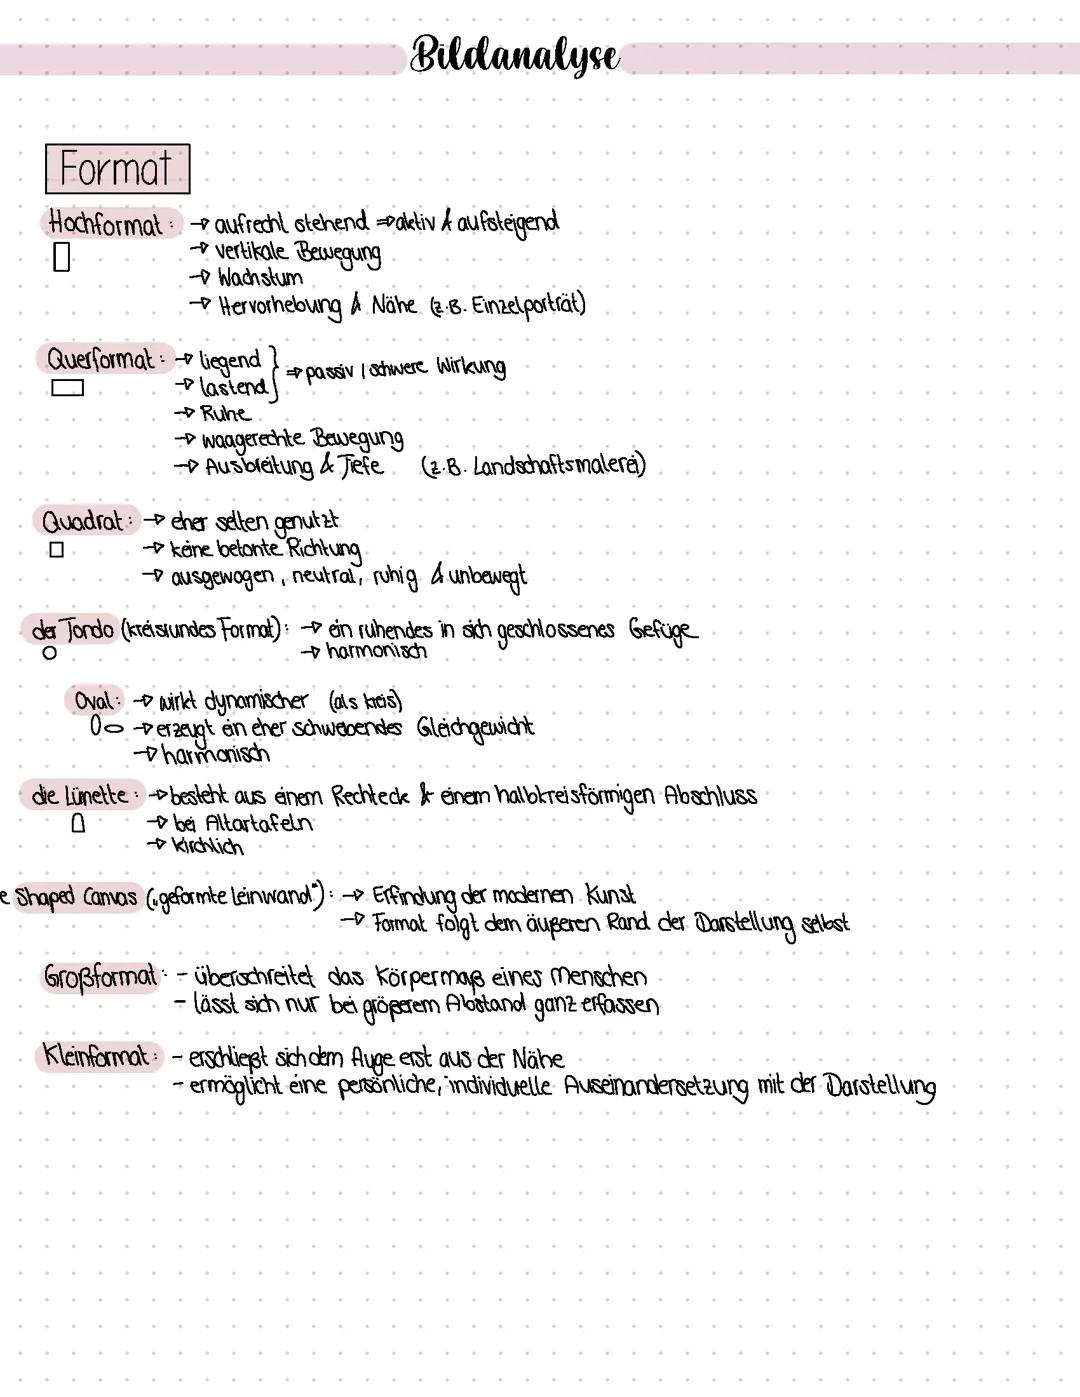 Bildanalyse
Format
Hochformat: → aufrecht stehend ⇒ aktiv & aufsteigend
→ vertikale Bewegung
→ Wachstum
→ Hervorhebung & Nähe (z.B. Einzelporträt)
Querformat: → liegend } ⇒ passiv / schwere Wirkung
→ lastend
→ Ruhe
→ waagerechte Bewegung
→ Ausbreitung & Tiefe (z.B. Landschaftsmalerei)
Quadrat: → eher selten genutzt
→ keine betonte Richtung
→ ausgewogen, neutral, ruhig & unbewegt
der Tondo (kreisrundes Format): → ein ruhendes in sich geschlossenes Gefüge
→ harmonisch
Oval: → wirkt dynamischer (als kreis)
→ erzeugt ein eher schwebendes Gleichgewicht
→ harmonisch
die Lünette: → besteht aus einem Rechteck & einem halbkreisförmigen Abschluss
→ bei Altartafeln
→ kirchlich
e Shaped Canvas („geformte Leinwand"): → Erfindung der modernen Kunst
→ Format folgt dem äußeren Rand der Darstellung selbst
Großformat: - überschreitet das Körpermaß eines Menschen
- lässt sich nur bei größerem Abstand ganz erfassen
Kleinformat: - erschließt sich dem Auge erst aus der Nähe
- ermöglicht eine persönliche, individuelle Auseinandersetzung mit der Darstellung